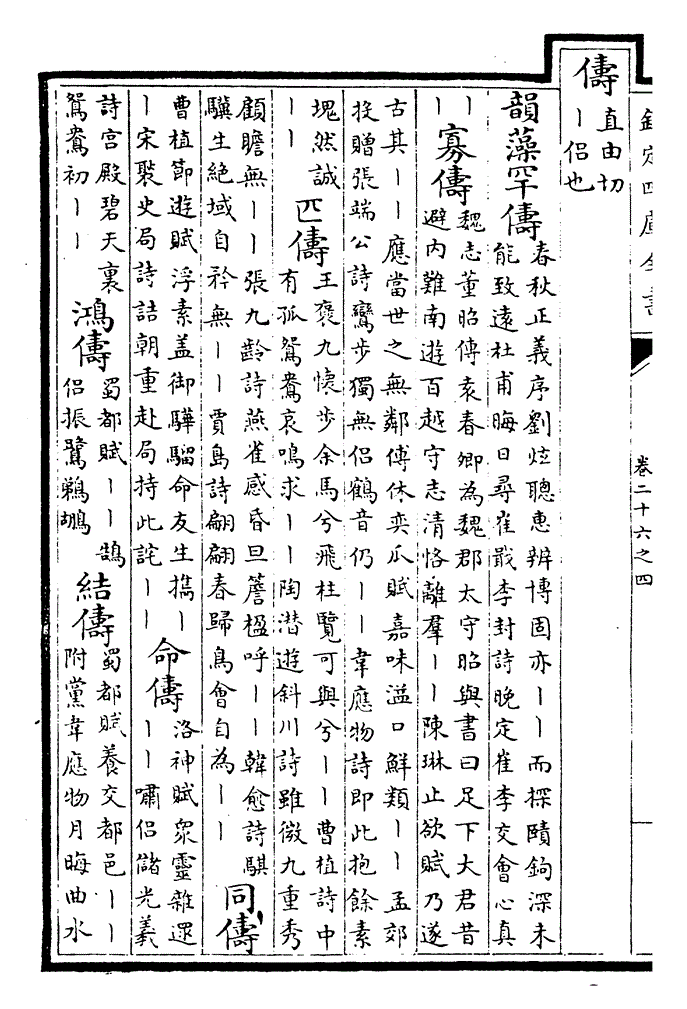 欽定四庫全書
卷二十六之四
儔
直由切
丨侶也
韻藻罕儔
春秋正義序劉炫聰惠辨博固亦丨丨而探賾鉤深未
能致遠杜甫晦日尋崔戢李封詩晚定崔李交會心真
丨
丨
寡儔
魏志董昭傳袁春卿為魏郡太守昭與書曰足下大君昔
避內難南遊百越守志清恪離羣丨丨陳琳止欲賦乃遂
古其丨丨應當世之無鄰傅休奕瓜賦嘉味溢口鮮類丨丨孟郊
投贈張端公詩鸞步獨無侶鶴音仍丨丨韋應物詩即此抱餘素
塊然誠
丨丨
匹儔
王襃九懷步余馬兮飛柱覽可與兮丨丨曹植詩中
有孤鴛鴦哀鳴求丨丨陶潛遊斜川詩雖微九重秀
顧瞻無丨丨張九齡詩燕雀感昏旦簷楹呼丨丨韓愈詩騏
驥生絕域自矜無丨丨賈島詩翩翩春歸鳥會自為丨丨
同儔
曹植節遊賦浮素蓋御驊騮命友生攜丨
丨宋褧史局詩詰朝重赴局持此詫丨丨
命儔
洛神賦眾靈雜遝
丨丨嘯侶儲光羲
詩宮殿碧天裏
鴛鴦初丨丨
鴻儔
蜀都賦丨丨鵠
侶振鷺鵜鶘
結儔
蜀都賦養交都邑丨丨
附黨韋應物月晦曲水